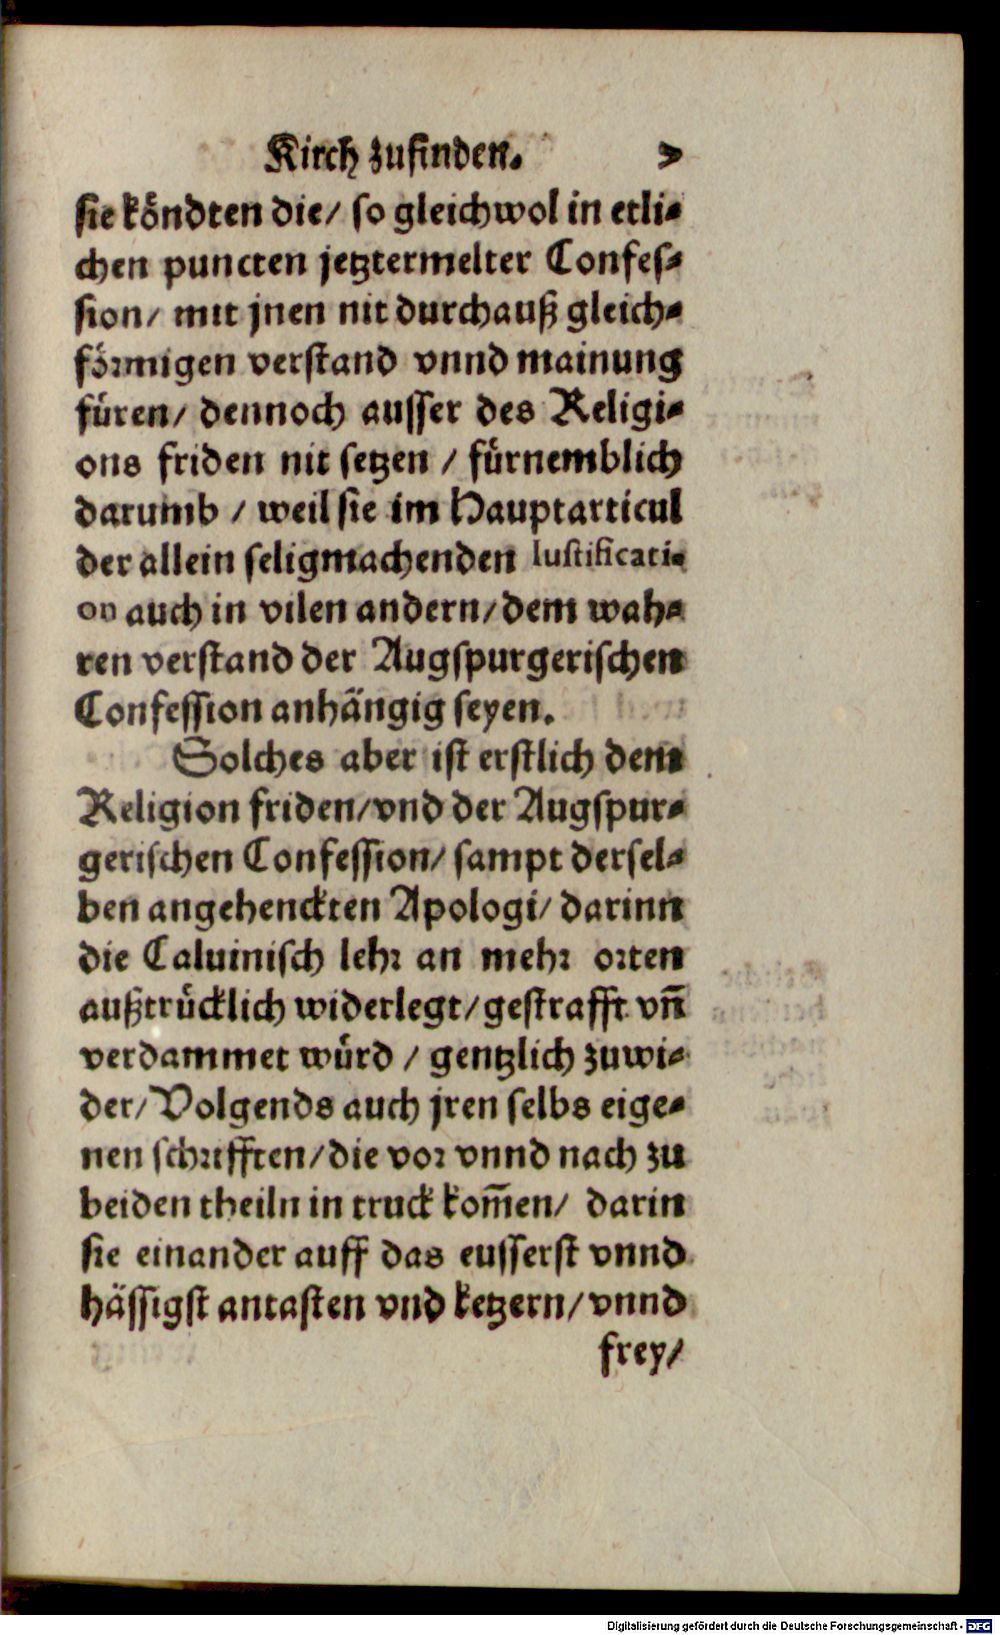 Kirch zufinden. 7
sie köndten die/ so gleichwol in etli-
chen puncten jetztermelter Confes-
sion/ mit jnen nit durchauß gleich-
förmigen verstand vnnd mainung
füren/ dennoch ausser des Religi-
ons friden nit setzen / fürnemblich
darumb / weil sie im Hauptarticul
der allein seligmachenden Iustificati-
on auch in vilen andern/ dem wah-
ren verstand der Augspurgerischen
Confession anhängig seyen.
Solches aber ist erstlich dem
Religion friden/ vnd der Augspur-
gerischen Confession/ sampt dersel-
ben angehenckten Apologi/ darinn
die Caluinisch lehr an mehr orten
außtrücklich widerlegt/ gestrafft vn̄
verdammet würd / gentzlich zuwi-
der/ Volgends auch jren selbs eige-
nen schrifften/ die vor vnnd nach zu
beiden theiln in truck kom̄en/ darin
sie einander auff das eusserst vnnd
hässigst antasten vnd ketzern/ vnnd
frey/
Digitalisierung gefördert durch die Deutsche Forschungsgemeinschaft - DFG